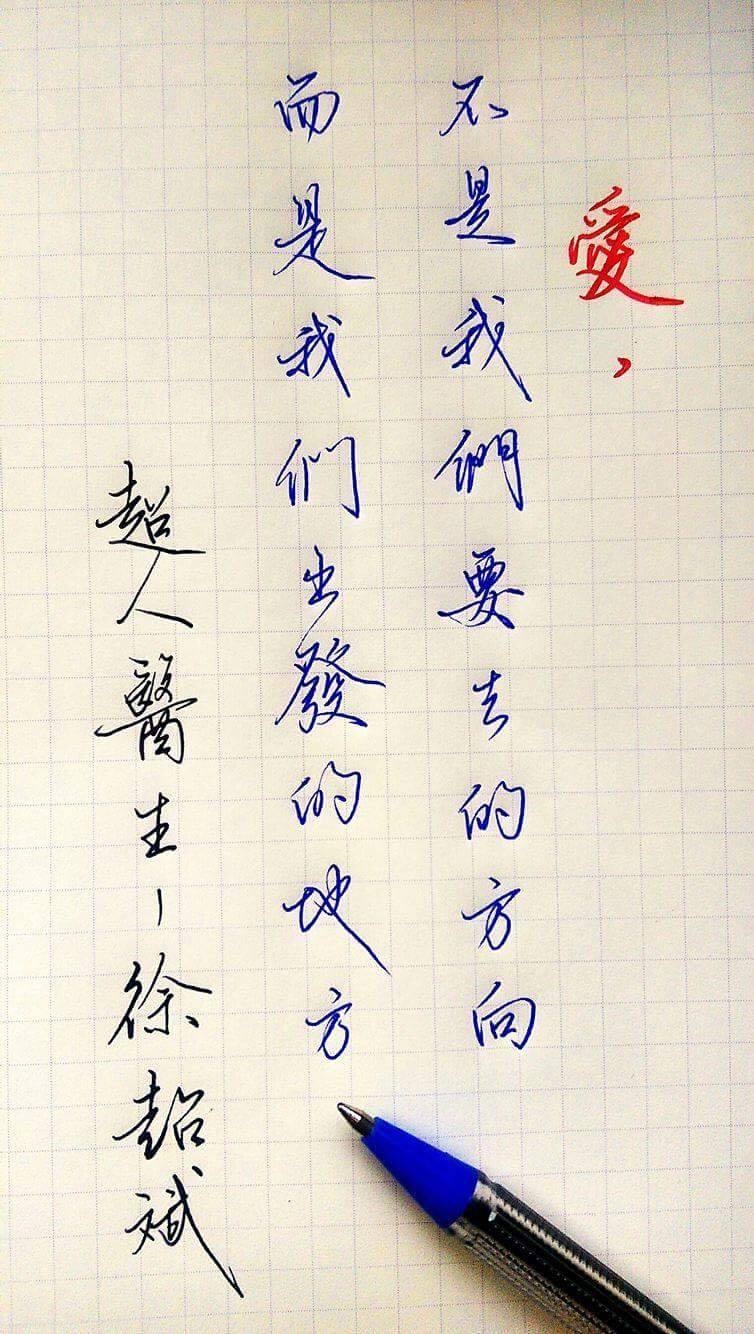 愛，
不是我們要去的方向
而是我们出發的地方
超人醫生－徐超斌